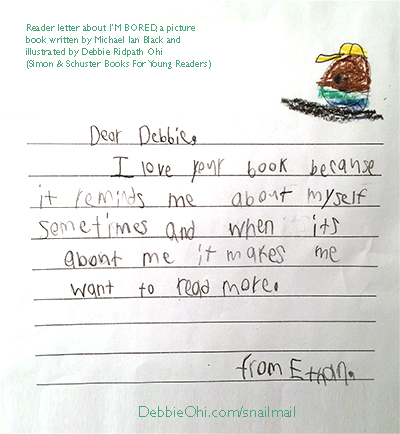 Reader letter about I'M BORED, a picture
book written by Michael Ian Black and
illustrated by Debbie Ridpath Ohi
(Simon & Schuster Books For Young Readers)
Dear Debbie,
I love your book because
it reminds me about myself
sometimes and when its
about me it makes me
want to read more.
from Ethan.
DebbieOhi.com/snailmail